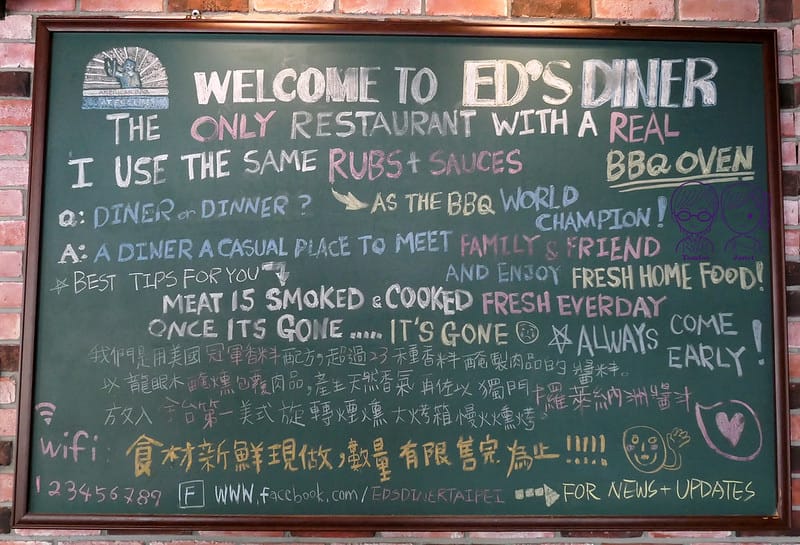 WELCOME TO ED'S DINER
THE ONLY RESTAURANT WITH A REAL
BBQ OVEN
I USE THE SAME RUBS + SAUCES
AS THE BBQ WORLD
CHAMPION!
Q: DINER or DINNER?
A: A DINER A CASUAL PLACE TO MEET FAMILY & FRIEND
AND ENJOY FRESH HOME FOOD!
BEST TIPS FOR YOU
MEAT IS SMOKED & COOKED FRESH EVERDAY
ONCE ITS GONE ..... IT'S GONE
ALWAYS COME
EARLY!
我們是用美國冠軍香料配方,超過23種香料醃製肉品的醬料.
以龍眼木醃燻包覆肉品,產生天然香氣再佐以獨門卡羅萊納洲醬汁
放入全台第一美式旋轉煙燻大烤箱慢火燻烤.
wifi:
123456789
食材新鮮現做,數量有限售完為止!!!!!
f www.facebook.com/EDSDINERTAIPEI FOR NEWS + UPDATES